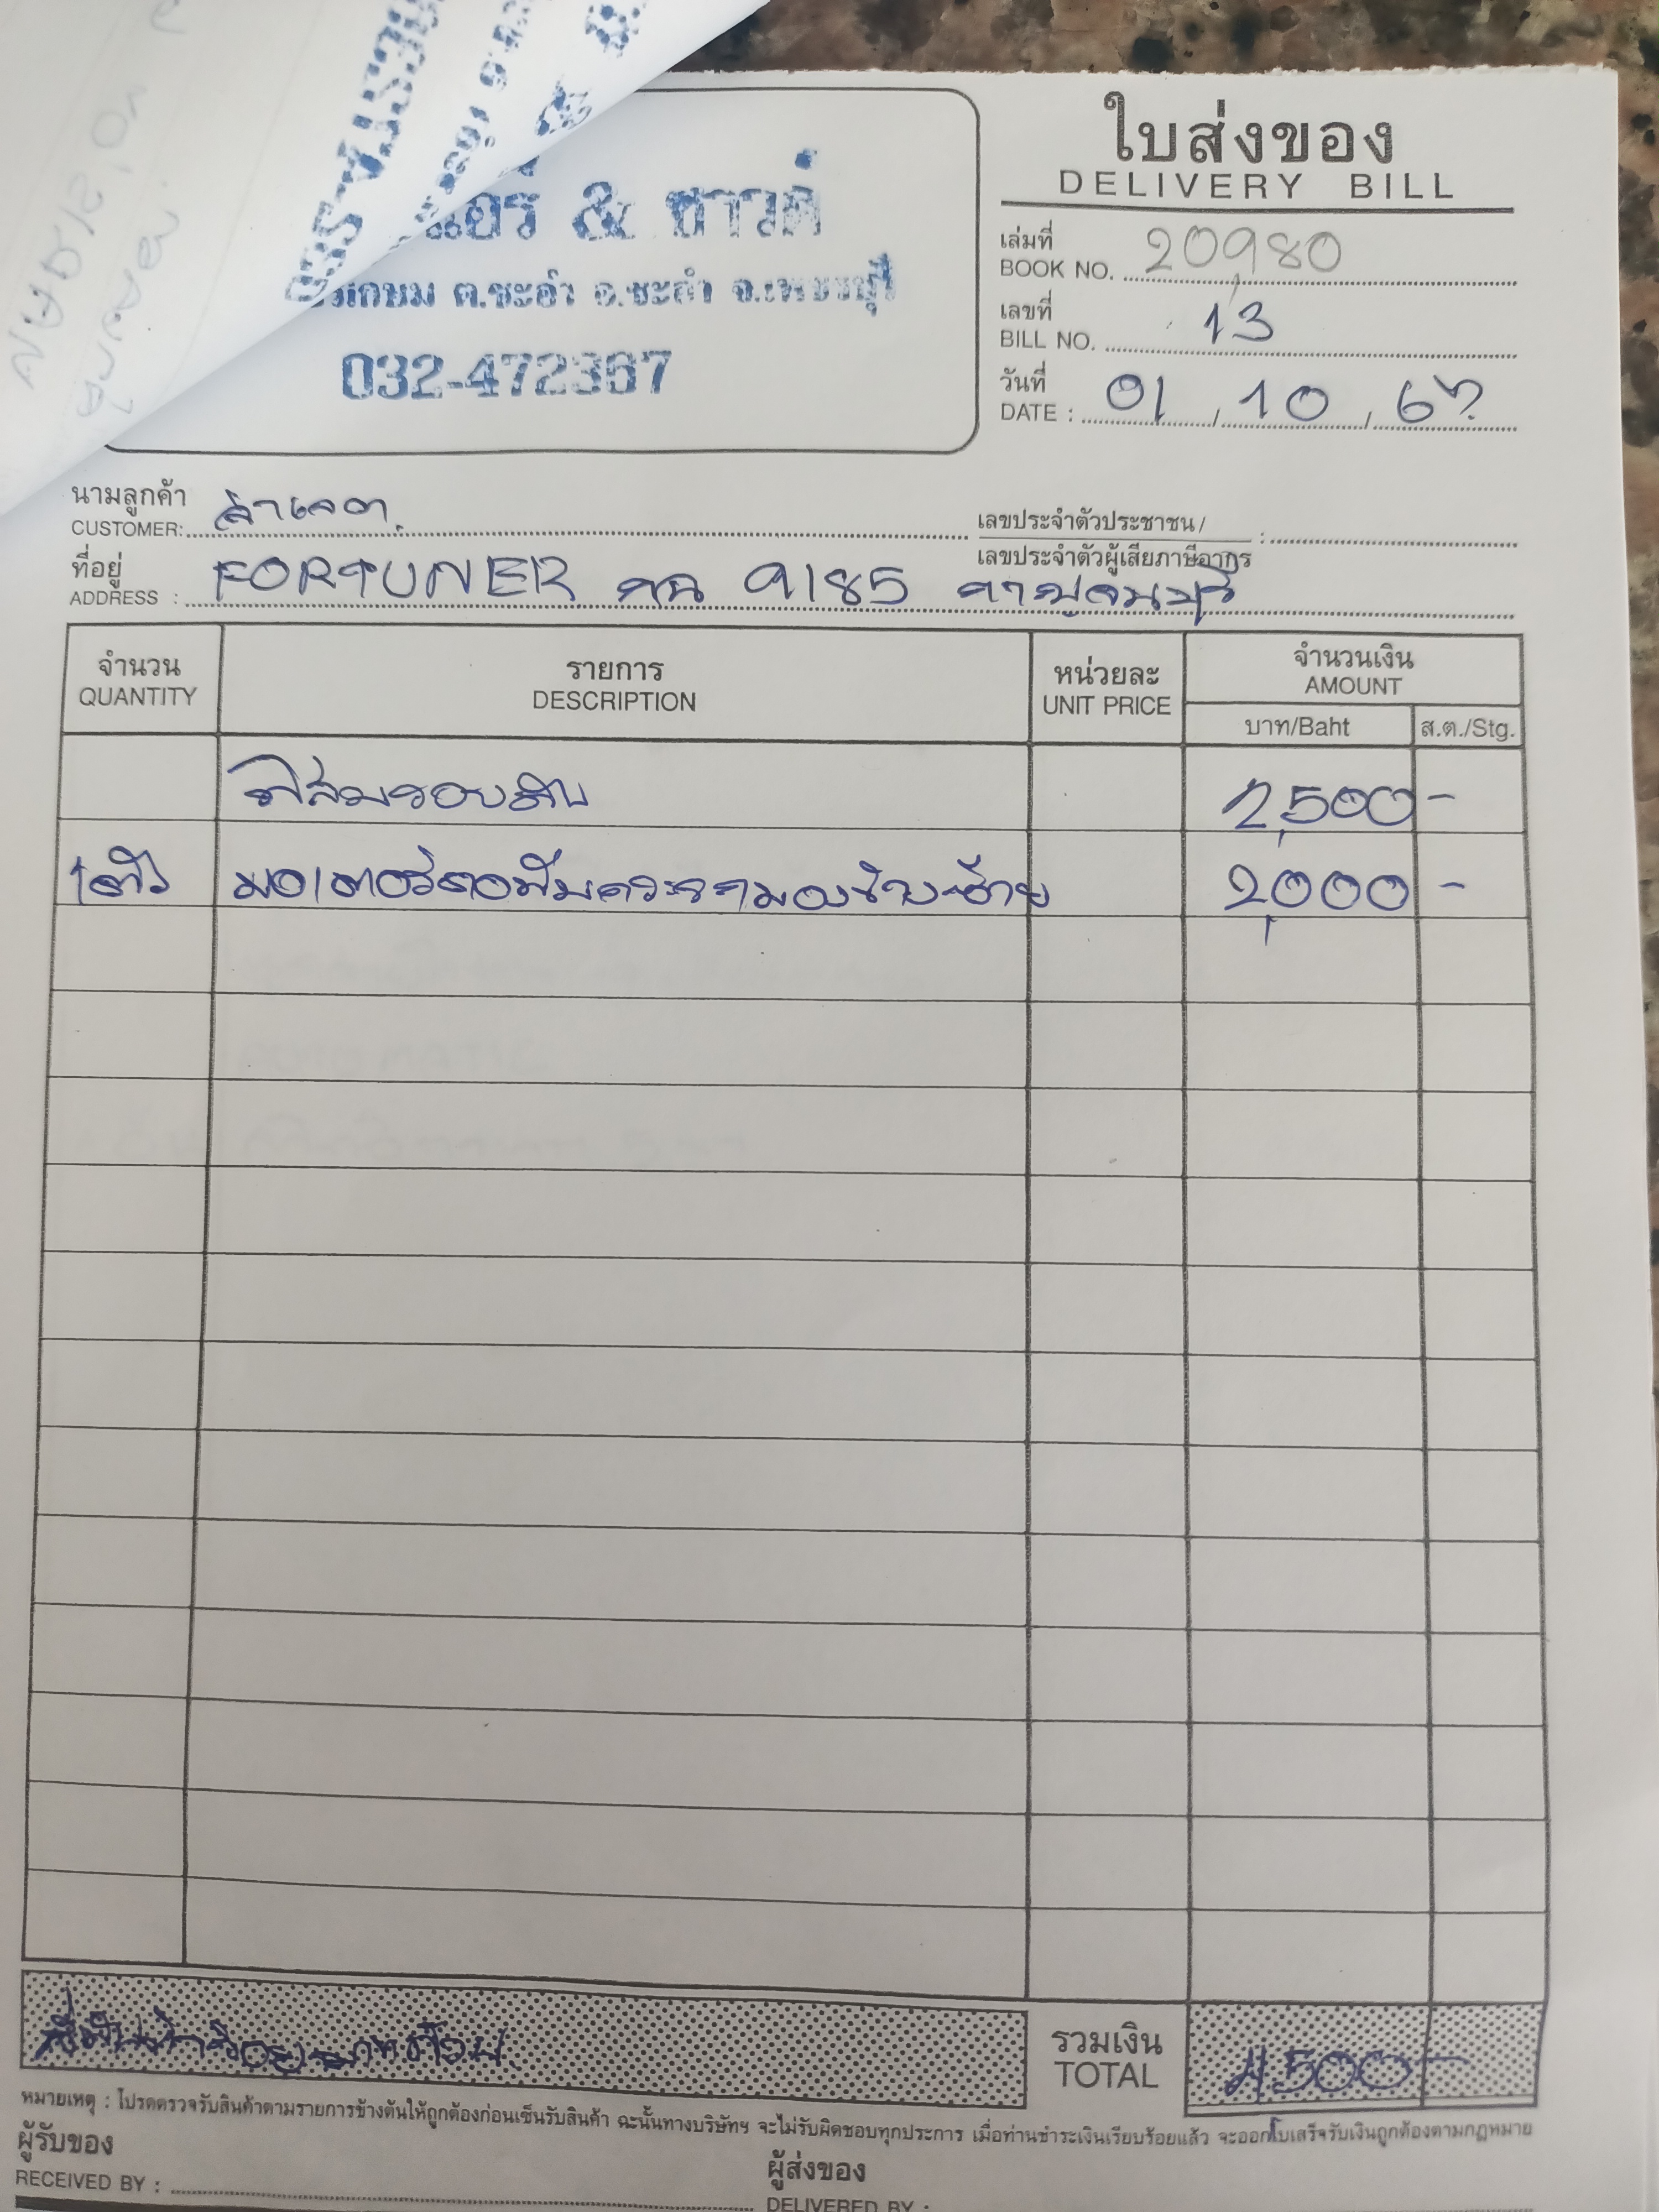 ใบส่งของ
DELIVERY BILL
แอร์ & ซาวด์
ต.ชะอำ อ.ชะอำ จ.เพชรบุรี
032-472367
เล่มที่
BOOK NO. 20,980
เลขที่
BILL NO. 13
วันที่
DATE : 01 / 10 / 67
นามลูกค้า
CUSTOMER:
เลขประจำตัวประชาชน /
เลขประจำตัวผู้เสียภาษีอากร :
ที่อยู่
ADDRESS : FORTUNER กฉ 9185 กาญจนบุรี
จำนวน
QUANTITY
รายการ
DESCRIPTION
หน่วยละ
UNIT PRICE
จำนวนเงิน
AMOUNT
บาท/Baht
ส.ต./Stg.
ฟิล์มรอบคัน 2,500 -
1ตัว มอเตอร์คอพับกระจกมองข้างซ้าย 2,000 -
สี่พันห้าร้อยบาทถ้วน
รวมเงิน
TOTAL
4,500 -
หมายเหตุ : โปรดตรวจรับสินค้าตามรายการข้างต้นให้ถูกต้องก่อนเซ็นรับสินค้า ฉะนั้นทางบริษัทฯ จะไม่รับผิดชอบทุกประการ เมื่อท่านชำระเงินเรียบร้อยแล้ว จะออกใบเสร็จรับเงินถูกต้องตามกฎหมาย
ผู้รับของ
RECEIVED BY :
ผู้ส่งของ
DELIVERED BY :